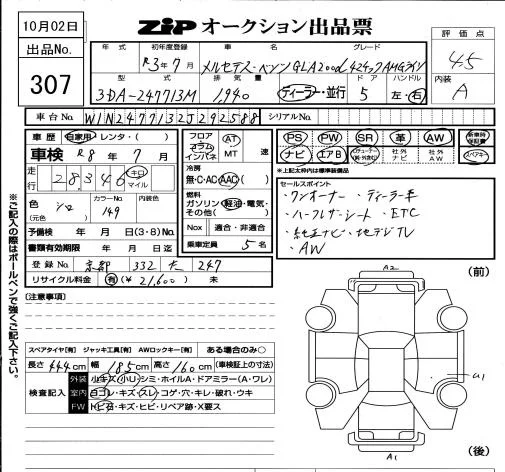 10月02日
ZiP オークション出品票
出品No.
307
評価点
4.5
内装
A
年式 初年度登録 車名 グレード
R3年7月 メルセデス・ベンツ GLA200d 4マチック AMGライン
型式 排気量 ドア ハンドル
3DA-247713M 1,940 ディーラー・並行 5 左・右
車台No. W1N2477132J292588 シリアルNo.
車歴 自家用・レンタ・( )
車検 R8年7月
走行 28,346 キロ マイル
色 シロ (元色) カラーNo. 149 内装色
予備検 年 月 日(3・8)No.
書類有効期限 年 月 日迄
登録No. 京都 332 247
リサイクル料金 有(¥21,600) 未
フロア コラム インパネ AT MT 速
冷房 無・C・AC・AAC
燃料 ガソリン・軽油・電気・その他( )
Nox 適合・非適合
乗車定員 5名
PS PW SR 革 AW 新車時保証書
ナビ エアB 社外ナビ 社外AW
*上記太枠内は標準装備品
セールスポイント
・ワンオーナー ・ディーラー車
・ハーフレザーシート ・ETC
・純正ナビ ・地デジTV
・AW
(注意事項)
※ご記入の際はボールペンで強くご記入下さい。
スペアタイヤ[有] ジャッキ工具[有] AWロックキー[有] ある場合のみ○
長さ444cm 幅185cm 高さ160cm (車検証上の寸法)
検査記入
外装 小キズ・小U・シミ・ホイルA・ドアミラー(A・ワレ)
室内 白コレ・キズ・スレ・コゲ・穴・キレ・破れ・ウキ
FW トビ石・キズ・ヒビ・リペア跡・X要ス
(前)
A2
U1
A1
(後)